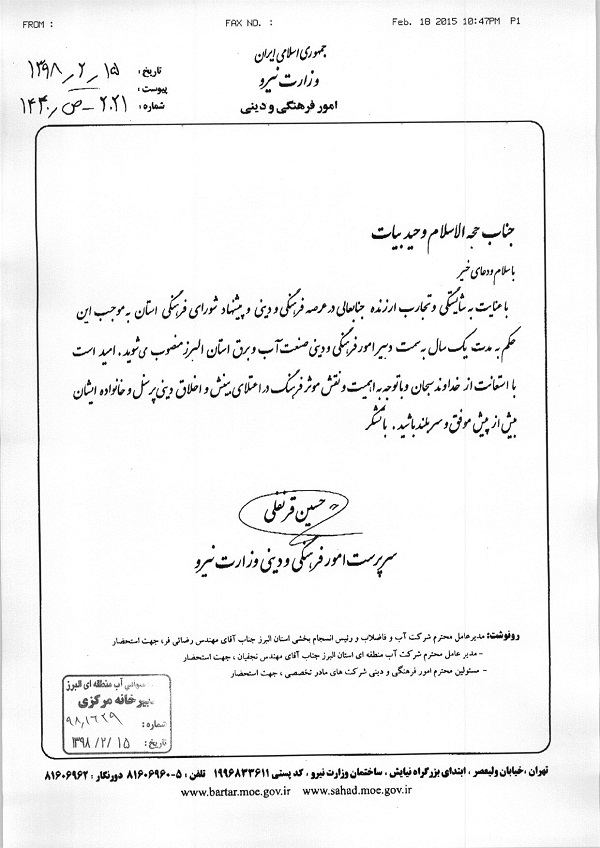 FROM : FAX NO. : Feb. 18 2015 10:47PM P1
جمهوری اسلامی ایران
وزارت نیرو
امور فرهنگی و دینی
تاریخ: ۱۳۹۸/۲/۱۵
پیوست:
شماره: ۲۰۲۱-ص/۱۴۴۰
جناب حجه الاسلام وحید بیات
با سلام و دعای خیر
با عنایت به شایستگی و تجارب ارزنده جنابعالی در عرصه فرهنگی و دینی و پیشنهاد شورای فرهنگی استان به موجب این
حکم به مدت یک سال به سمت دبیر امور فرهنگی و دینی صنعت آب و برق استان البرز منصوب می شوید. امید است
با استعانت از خداوند سبحان و با توجه به اهمیت و نقش موثر فرهنگ در اعتلای بینش و اخلاق دینی پرسنل و خانواده ایشان
بیش از پیش موفق و سربلند باشید. باتشکر
حسین قرنفلی
سرپرست امور فرهنگی و دینی وزارت نیرو
رونوشت: مدیرعامل محترم شرکت آب و فاضلاب و رئیس انسجام بخشی استان البرز جناب آقای مهندس رضائی فر، جهت استحضار
- مدیر عامل محترم شرکت آب منطقه ای استان البرز جناب آقای مهندس نجفیان ، جهت استحضار
- مسئولین محترم امور فرهنگی و دینی شرکت های مادر تخصصی ، جهت استحضار
آب منطقه ای البرز
دبیرخانه مرکزی
شماره: ۹۸/۱۶۲۹
تاریخ: ۱۳۹۸/۲/۱۵
تهران ،خیابان ولیعصر ، ابتدای بزرگراه نیایش ، ساختمان وزارت نیرو ، کد پستی ۱۹۹۶۸۳۳۶۱۱ تلفن : ۵-۸۱۶۰۶۹۶۰ دورنگار : ۸۱۶۰۶۹۶۲
www.bartar.moe.gov.ir www.sahad.moe.gov.ir